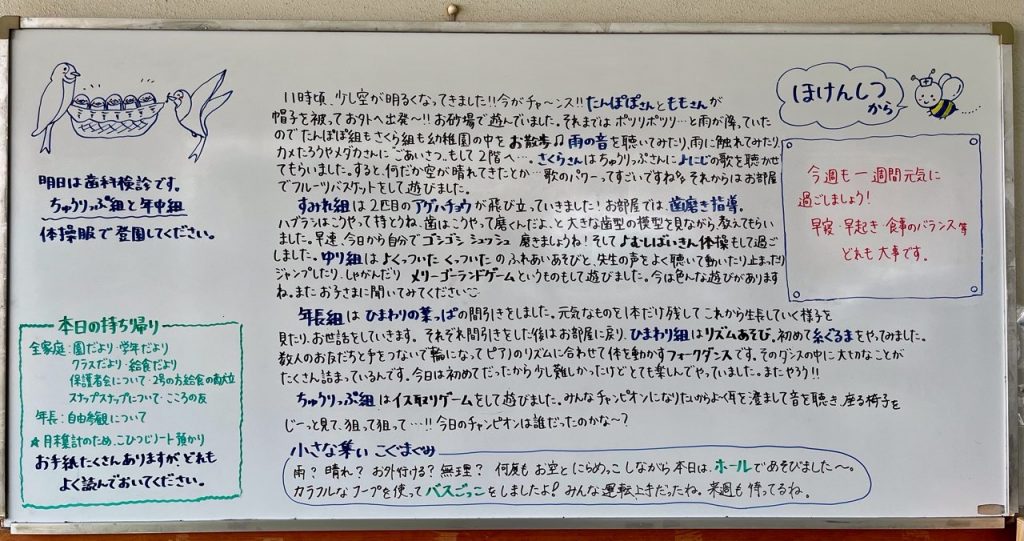 明日は歯科検診です。
ちゅうりっぷ組と年中組
体操服で登園してください。
本日の持ち帰り
全家庭:園だより・学年だより
クラスだより・給食だより
保護者会について・2号の方給食の献立
スナップスナップについて・こころの友
年長:自由参観について
★月末集計のため、こひつじノート預かり
お手紙たくさんありますが、どれも
よく読んでおいてください。
11時頃、少し空が明るくなってきました!!今がチャ〜ンス!!たんぽぽさんとももさんが
帽子を被ってお外へ出発〜!!お砂場で遊んでいました。それまではポツリポツリ…と雨が降っていた
のでたんぽぽ組もさくら組も幼稚園の中をお散歩♫雨の音を聴いてみたり、雨に触れてみたり、
カメたろうやメダカさんにごあいさつ。もして2階へ…。さくらさんはちゅうりっぷさんによにじの歌を聴かせ
てもらいました。すると、何だか空が晴れてきたとか…歌のパワーってすごいですねそれからはお部屋
でフルーツバスケットをして遊びました。
すみれ組は2匹目のアゲハチョウが飛び立っていきました!お部屋では、歯磨き指導。
ハブラシはこうやって持とうね、歯はこうやって磨くんだよ、と大きな歯型の模型を見ながら、教えてもらい
ました。早速、今日から自分でゴシゴシシュッシュ磨きましょうね!そして♪むしばいきん体操もして過ご
しました。ゆり組は♪くっついたくっついたのふれあいあそびと、先生の声をよく聴いて動いたり止まったり
ジャンプしたり、しゃがんだりメリーゴーランドゲームというものもして遊びました。今は色んな遊びがあります
ね。またお子さまに聞いてみてください
年長組はひまわりの葉っぱの間引きをしました。元気なものを1本だけ残してこれから生長していく様子を
見たり、お世話をしていきます。それぞれ間引きをした後はお部屋に戻り、ひまわり組はリズムあそび、初めて糸ぐるまをやってみました。
数人のお友だちと手をつないで輪になってピアノのリズムに合わせて体を動かすフォークダンスです。そのダンスの中に大切なことが
たくさん詰まっているんです。今日は初めてだったから少し難しかったけどとても楽しんでやっていました。またやろう!!
ちゅうりっぷ組はイス取りゲームをして遊びました。みんなチャンピオンになりたいからよく耳を澄まして音を聴き、座る椅子を
じーっと見て、狙って狙って…!!今日のチャンピオンは誰だったのかな〜?
小さな集い こぐまぐみ
雨?晴れ?お外行ける?無理?何度もお空とにらめっこしながら本日は、ホールであそびました〜。
カラフルなフープを使ってバスごっこをしましたよ!みんな運転上手だったね。来週も待ってるね。
ほけんしつ
から
今週も一週間元気に
過ごしましょう!
早寝・早起き・食事のバランス等
どれも大事です。